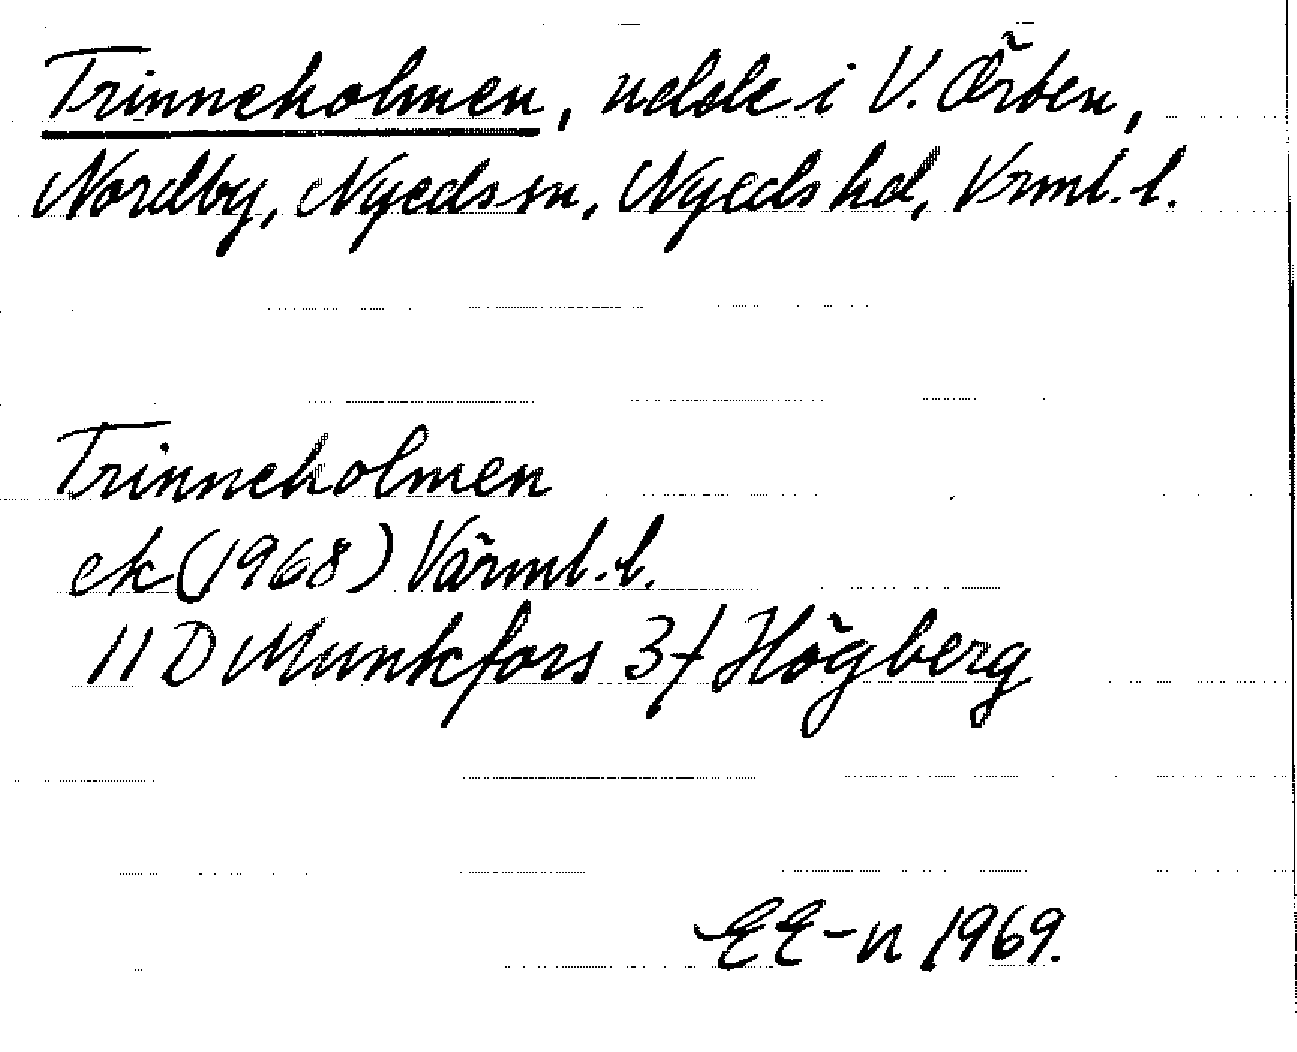 Trinneholmen, udde i V. Örten,
Nordby, Nyeds sn, Nyeds hd, Vrml. l.
Trinneholmen
ek (1968) Värml. l.
11 D Munkfors 3f Högberg
EE-n 1969.